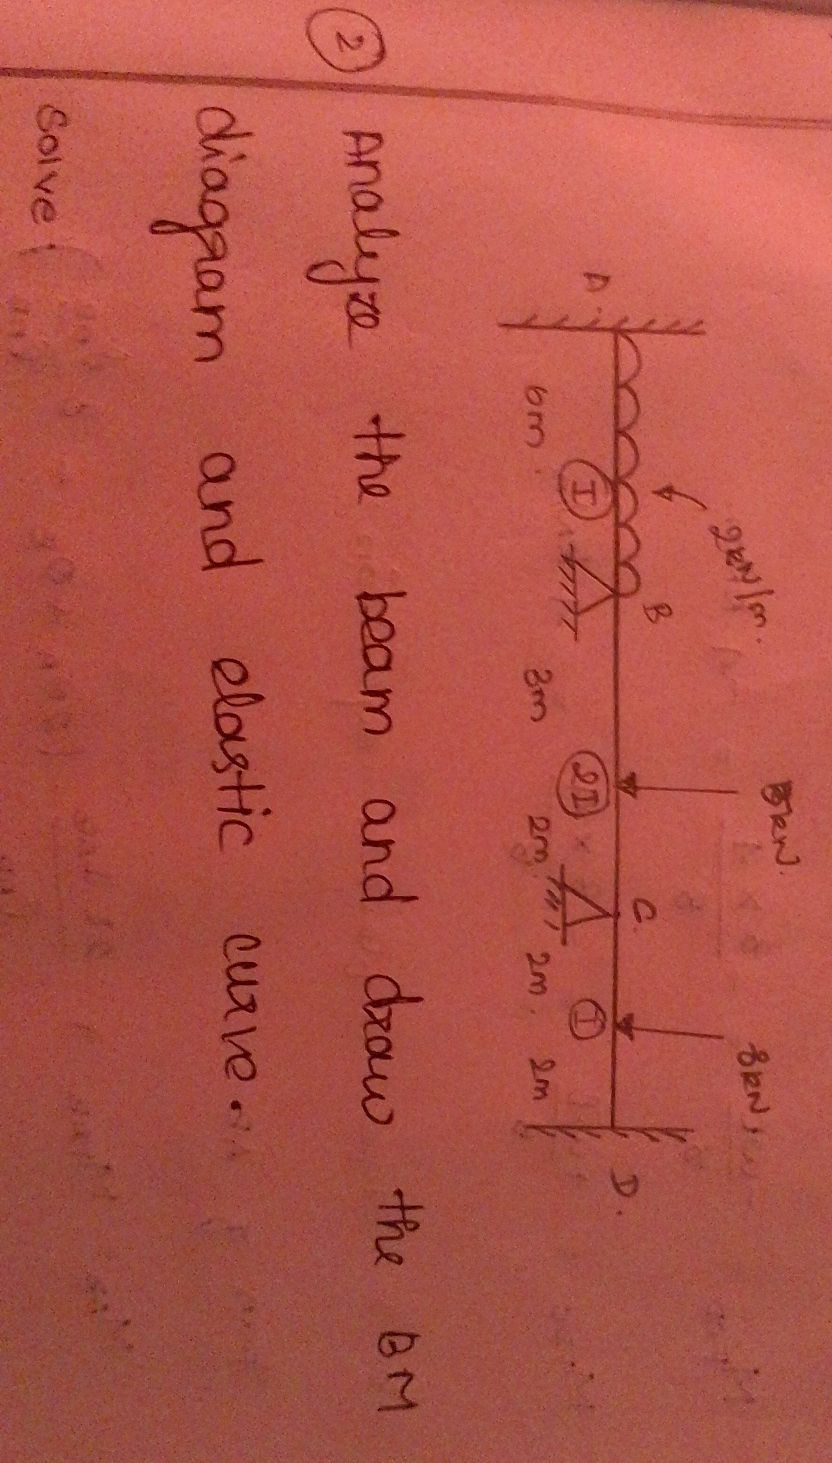 2kN/m.
5kN.
8kN.
A.
B
C.
D.
6m.
I
3m
2I
2m.
2m.
I
2m
② Analyze the beam and draw the BM
diagram and elastic curve.
Solve: